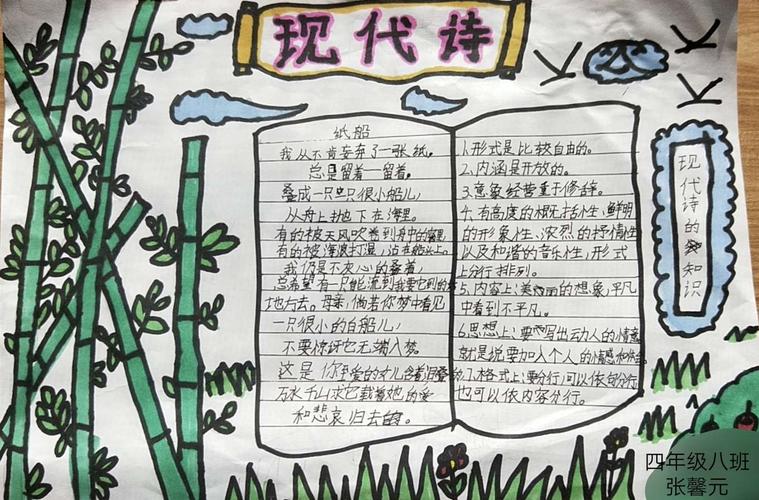 现代诗
纸船
我从不肯妄弃了一张纸。
总是留着一留着。
叠成一只只很小船儿，
从舟上抛下在海里。
有的被天风吹卷到舟中的窗里
有的被海浪打湿，沾在船头上。
我仍是不灰心的叠着，
总希望有一只能流到我要它到的
地方去。母亲，倘若你梦中看见
一只很小的白船儿，
不要惊讶它无端入梦。
这是你至爱的女儿含着泪叠的
万水千山求它载着她的爱
和悲哀归去。
1.形式是比较自由的。
2.内涵是开放的。
3.意象经营重于修辞。
4.有高度的概括性、鲜明
的形象性、浓烈的抒情性
以及和谐的音乐性，形式
上分行排列。
5.内容上：美的想象，平凡
中看到不平凡。
6.思想上：要写出动人的情意
就是说要加入个人的情感和
7.格式上：要分行，可以依句分行
也可以依内容分行。
现代诗的知识
四年级八班
张馨元